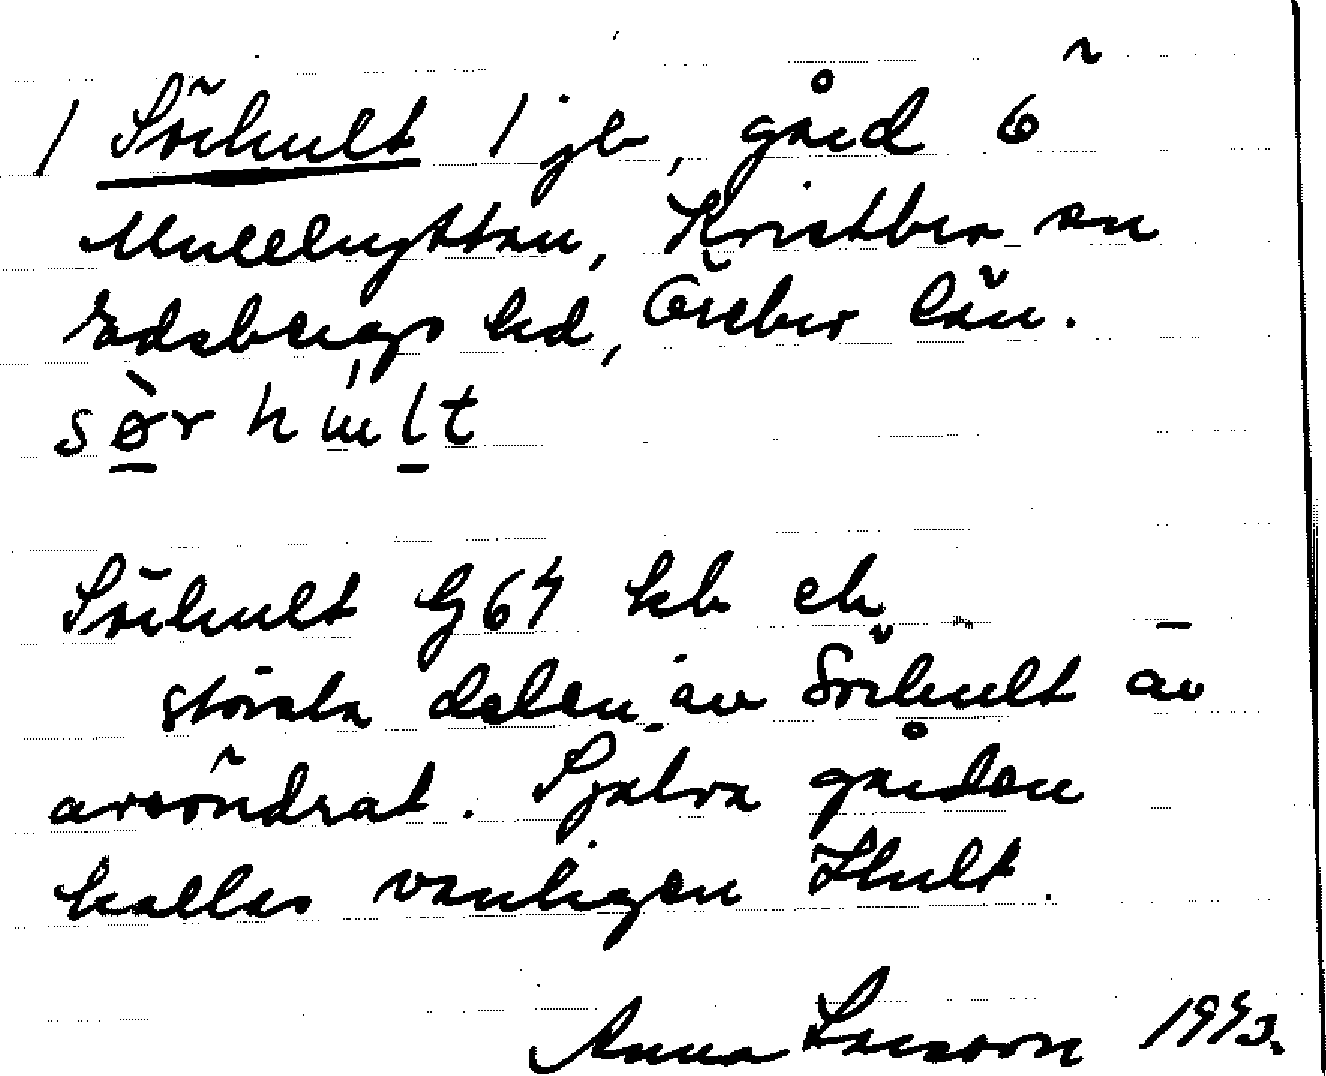 / Sörhult / jb, gård 6
Mullhyttan, Kvistbro sn
Edsbergs hd, Örebro län.
sør hult
Sörhult G67 kb ek
största delen av Sörhult är
avsöndrat. Själva gården
kallas vanligen Hult.
Anna Larsson 1993.